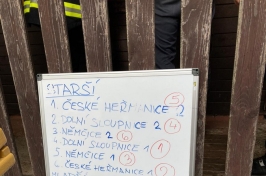 STARŠÍ
1. ČESKÉ HEŘMANICE 2 5
2. DOLNÍ SLOUPNICE 2 4
3. NĚMČICE 2 6
4. DOLNÍ SLOUPNICE 1 1
5. NĚMČICE 1 3
6. ČESKÉ HEŘMANICE 1 2